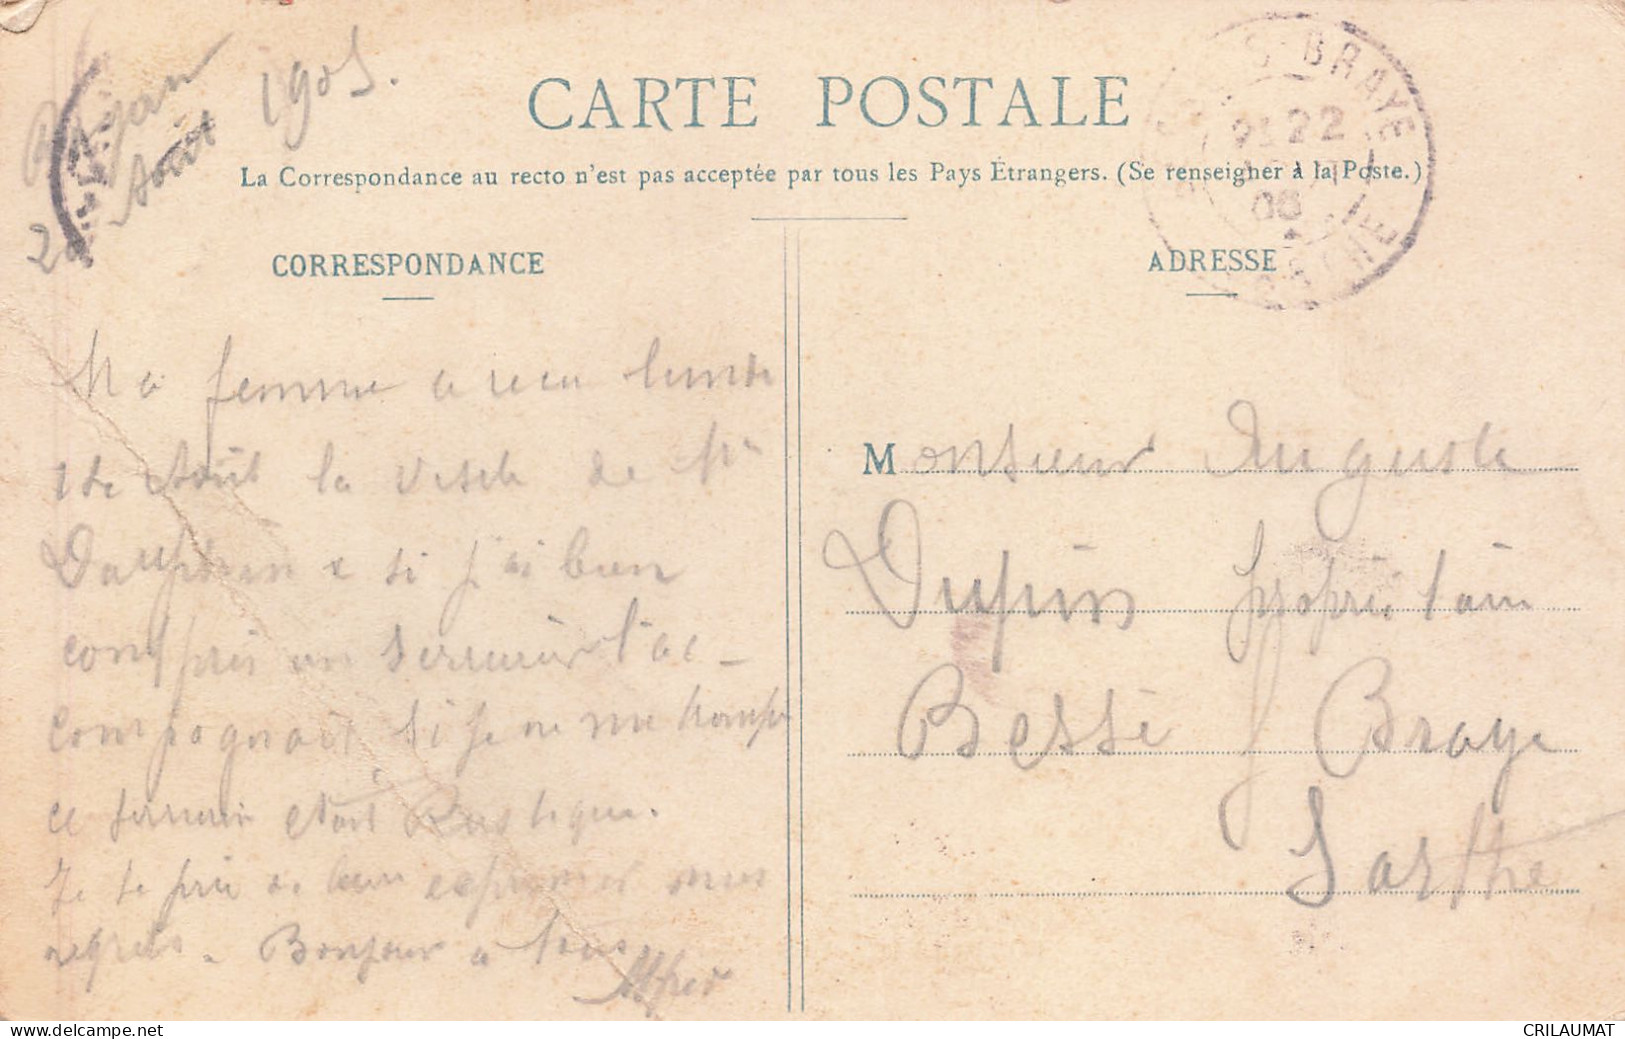 Août 1905.
CARTE POSTALE
La Correspondance au recto n'est pas acceptée par tous les Pays Étrangers. (Se renseigner à la Poste.)
CORRESPONDANCE
ADRESSE
BRAYE
22
Ma femme a recu
Août la visite de Mr
si j'ai bien
compris un l'ac-
compagnait si je ne me trompe
ce était Rustique.
Je te prie de bien exprimer mes
regrets. Bonjour a tous
Alfred
Monsieur Auguste
Dupin propriétaire
Bessé s/ Braye
Sarthe
www.delcampe.net
CRILAUMAT